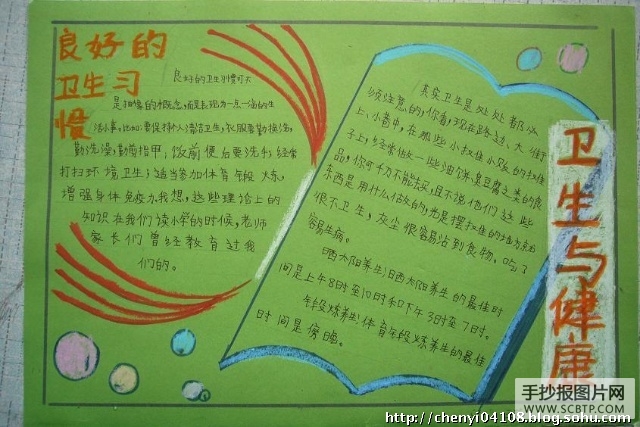 良好的
卫生习
惯
良好的卫生习惯可不
是抽象的概念,而是表现为一点一滴的生
活小事。比如:要保持个人清洁卫生,衣服要勤换洗,
勤洗澡,勤剪指甲;饭前便后要洗手;经常
打扫环境卫生;适当参加体育锻炼,
增强身体免疫力。我想,这些理论上的
知识在我们读小学的时候,老师
家长们曾经教育过我
们的。
其实卫生是处处都必
须注意的,你看,现在路边、大街
上、小巷中,在那些小摊小贩的摊
子上,经常做一些油饼、臭豆腐之类的食
品,你可千万不能去买,且不说他们这些
东西是用什么做的,光是摆摊的地方就
很不卫生,灰尘很容易沾到食物,吃了
容易生病。
晒太阳养生:晒太阳养生的最佳时
间是上午8时至10时和下午3时至7时。
锻炼养生:体育锻炼养生的最佳
时间是傍晚。
卫生与健康
手抄报图片网
WWW.SCBTP.COM
http://chenyi04108.blog.sohu.com